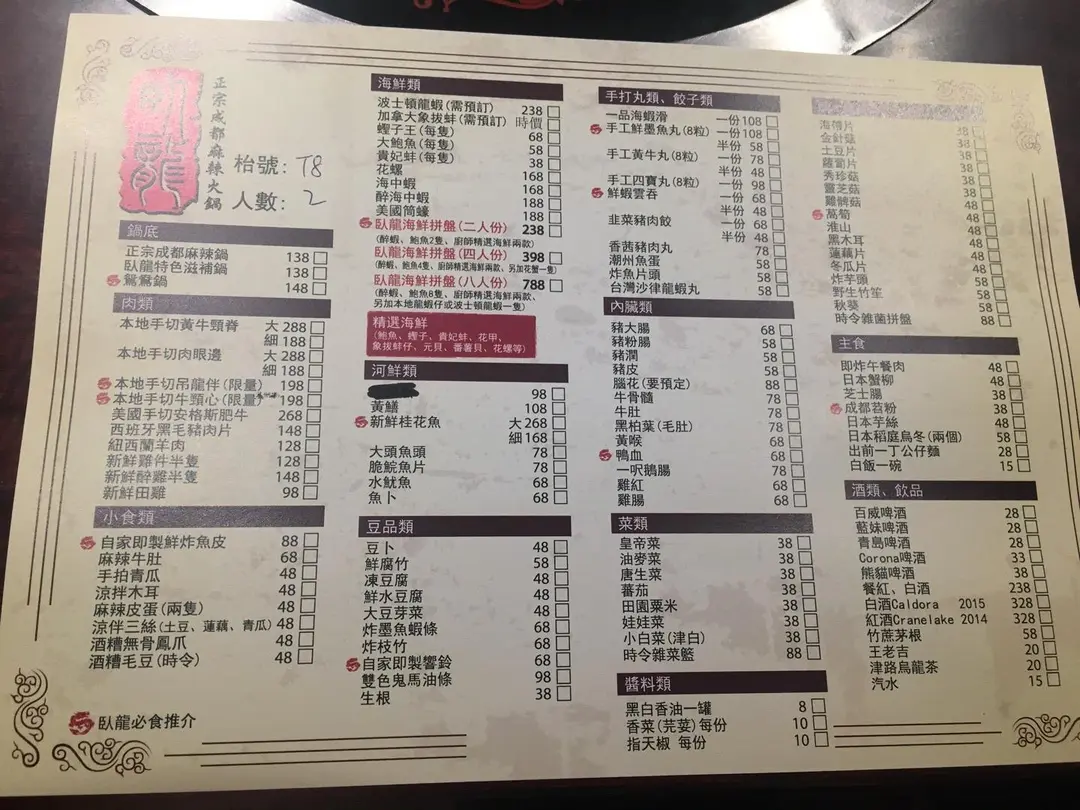 臥龍
正宗成都麻辣火鍋
枱號: T8
人數: 2
鍋底
正宗成都麻辣鍋 138
臥龍特色滋補鍋 138
鴛鴦鍋 148
肉類
本地手切黃牛頸脊 大 288
細 188
本地手切肉眼邊 大 288
細 188
本地手切吊龍伴(限量) 198
本地手切牛頸心(限量) 198
美國手切安格斯肥牛 268
西班牙黑毛豬肉片 148
紐西蘭羊肉 128
新鮮雞件半隻 128
新鮮醉雞半隻 148
新鮮田雞 98
小食類
自家即製鮮炸魚皮 88
麻辣牛肚 68
手拍青瓜 48
涼拌木耳 48
麻辣皮蛋(兩隻) 48
涼伴三絲(土豆、蓮藕、青瓜) 48
酒糟無骨鳳爪 48
酒糟毛豆(時令) 48
臥龍必食推介
海鮮類
波士頓龍蝦(需預訂) 238
加拿大象拔蚌(需預訂) 時價
蟶子王(每隻) 68
大鮑魚(每隻) 58
貴妃蚌(每隻) 38
花螺 168
海中蝦 168
醉海中蝦 188
美國筒蠔 188
臥龍海鮮拼盤(二人份) 238
(醉蝦、鮑魚2隻、廚師精選海鮮兩款)
臥龍海鮮拼盤(四人份) 398
(醉蝦、鮑魚4隻、廚師精選海鮮兩款、另加花蟹一隻)
臥龍海鮮拼盤(八人份) 788
(醉蝦、鮑魚8隻、廚師精選海鮮兩款、
另加本地龍蝦仔或波士頓龍蝦一隻)
精選海鮮
(鮑魚、蟶子、貴妃蚌、花甲、
象拔蚌仔、元貝、番薯貝、花螺等)
河鮮類
98
黃鱔 108
新鮮桂花魚 大 268
細 168
大頭魚頭 78
脆鯇魚片 78
水魷魚 68
魚卜 68
豆品類
豆卜 48
鮮腐竹 58
凍豆腐 48
鮮水豆腐 48
大豆芽菜 48
炸墨魚蝦條 68
炸枝竹 68
自家即製響鈴 68
雙色鬼馬油條 98
生根 38
手打丸類、餃子類
一品海蝦滑 一份 108
手工鮮墨魚丸(8粒) 一份 108
半份 58
手工黃牛丸(8粒) 一份 78
半份 48
手工四寶丸(8粒) 一份 98
鮮蝦雲吞 一份 68
半份 48
韭菜豬肉餃 一份 68
半份 48
香茜豬肉丸 78
潮州魚蛋 58
炸魚片頭 58
台灣沙律龍蝦丸 58
內臟類
豬大腸 68
豬粉腸 58
豬潤 58
豬皮 58
腦花(要預定) 88
牛骨髓 78
牛肚 78
黑柏葉(毛肚) 78
黃喉 68
鴨血 68
一呎鵝腸 78
雞紅 68
雞腸 68
菜類
皇帝菜 38
油麥菜 38
唐生菜 38
蕃茄 38
田園粟米 38
娃娃菜 38
小白菜(津白) 38
時令雜菜籃 88
醬料類
黑白香油一罐 8
香菜(芫荽)每份 10
指天椒 每份 10
海帶片 38
金針菇 38
土豆片 38
蘿蔔片 38
秀珍菇 38
靈芝菇 38
雞髀菇 38
萵筍 48
淮山 48
黑木耳 48
蓮藕片 48
冬瓜片 48
炸芋頭 58
野生竹笙 58
秋葵 58
時令雜菌拼盤 88
主食
即炸午餐肉 48
日本蟹柳 48
芝士腸 38
成都苕粉 38
日本芋絲 48
日本稻庭烏冬(兩個) 58
出前一丁公仔麵 28
白飯一碗 15
酒類、飲品
百威啤酒 28
藍妹啤酒 28
青島啤酒 28
Corona啤酒 33
熊貓啤酒 38
餐紅、白酒 238
白酒Caldora 2015 328
紅酒Cranelake 2014 328
竹蔗茅根 58
王老吉 20
津路烏龍茶 20
汽水 15